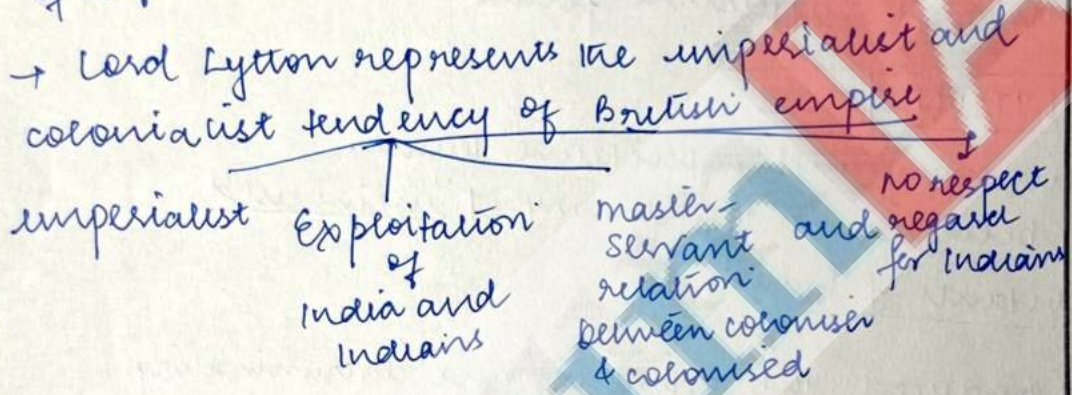 → Lord Lytton represents the imperialist and
colonialist tendency of British empire
imperialist
Exploitation
of
India and
Indians
master-
servant
relation
between coloniser
& colonised
and
no respect
regard
for Indians